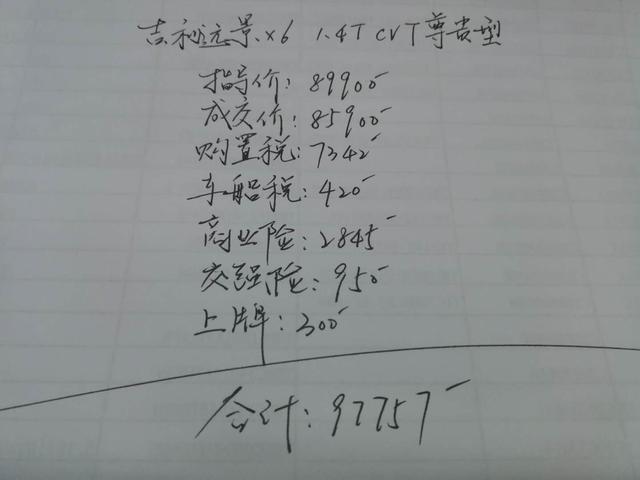 吉利远景X6 1.4T CVT尊贵型
指导价:89900
成交价:85900
购置税:7342
车船税:420
商业险:2845
交强险:950
上牌:300
合计:97757